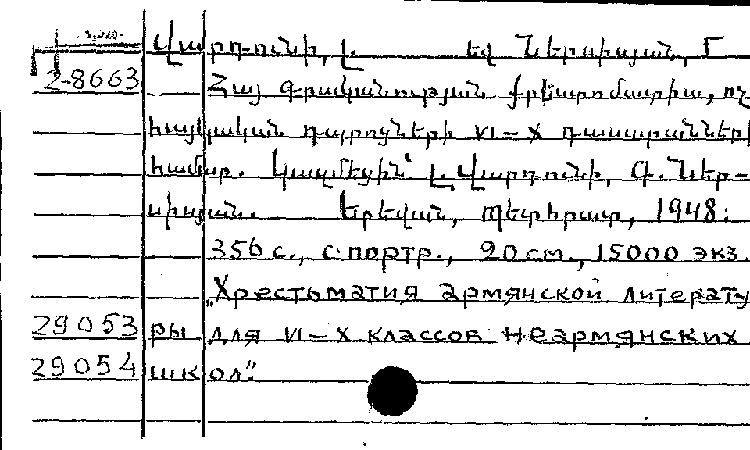 Վարդունի, Լ. եվ Ներսիսյան, Գ
2-8663 Հայ գրականության քրեստոմատիա, ոչ
հայկական դպրոցների VI – X դասարանների
համար. Կազմեցին՝ Լ. Վարդունի, Գ. Ներ-
սիսյան. Երեվան, Պետհրատ, 1948։
356 с., с портр., 20 см., 15000 экз.
„Хрестоматия армянской литерату
29053 ры для VI – X классов неармянских
29054 школ".